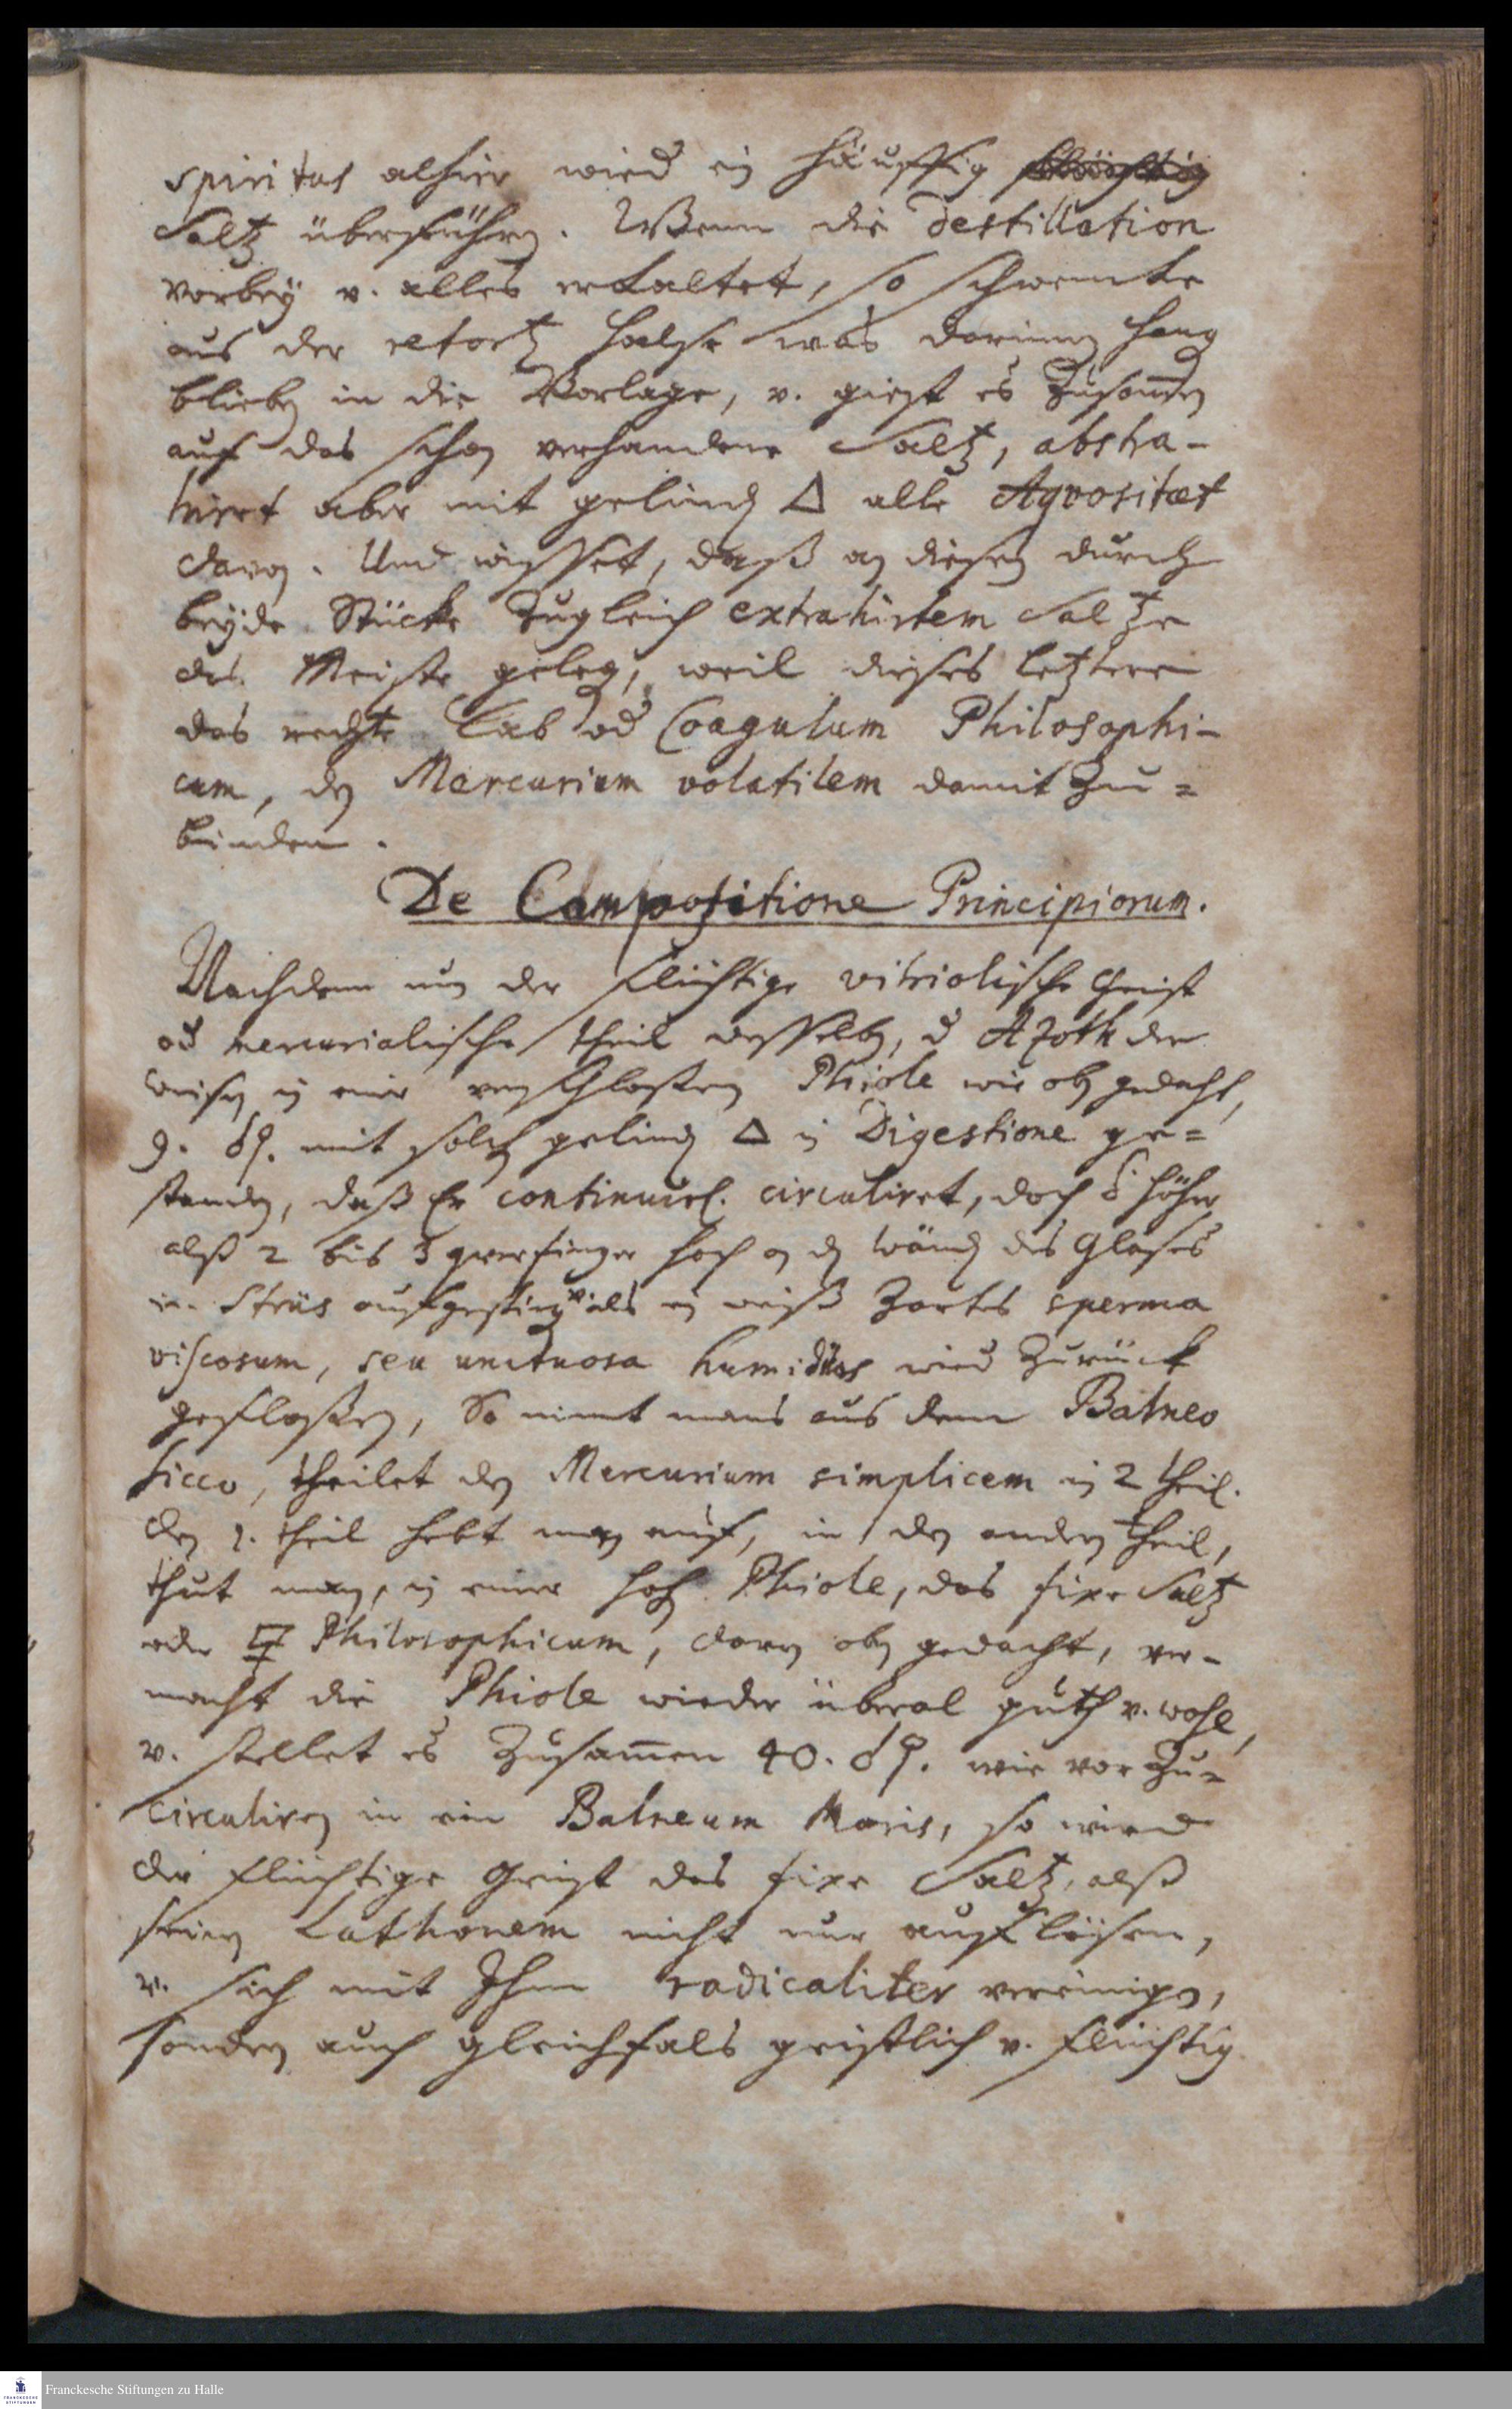 spiritus alhier wird ein häuffig
Saltz überführen. Wenn die destillation
vorbey v. alles erkaltet, so schwencke
aus der retortz halse was darinnen hang
blieben in die Vorlage, v. giest es zusamen
auf das schon verhandene Saltz, abstra-
hirt aber mit gelinden △ alle Aqvositaet
davon. Und wisset, daß an diesen durch
beyde Stücke zugleich extrahirtem Saltze
das Meiste gelegen, weil dieses letztere
das rechte Lab od Coagulum Philosophi-
cum, den Mercurium volatilem damit zu=
binden.
De Compositione Principiorum.
Nachdem nun der flüchtige vitriolische Geist
od mercurialische theil desselben, d Azoth der
weisen in einer verschloßenen Phiole wie oben gedacht,
mit solchen gelinden △ in Digestione ge=
standen, daß Er continuirl. circuliret, doch höher
alß 2 bis 3 qverfinger hoch an den wänden des Glases
aufgestiegen v. als ein weiß zartes sperma
viscosum, seu unctuosa humiditas wied zurück
gefloßen, So nimt mans aus dem Balneo
sicco, theilet den Mercurium simplicem in 2 theil.
den 1. theil hebt man auf, in den andern theil,
thut man, in einer hohen Phiole, das fixe Saltz
oder Philosophicum, davon oben gedacht, ver-
macht die Phiole wieder überal guth v. wohl,
v. stellet es zusammen 40. wie vor zu-
circuliren in ein Balneum Maris, so wird
der flüchtige Geist das fixe Saltz, alß
seinen Lathonem nicht nur auflösen,
v. sich mit Ihm radicaliter vereinigen,
sondern auch gleichfals geistlich v. flüchtig
Franckesche Stiftungen zu Halle